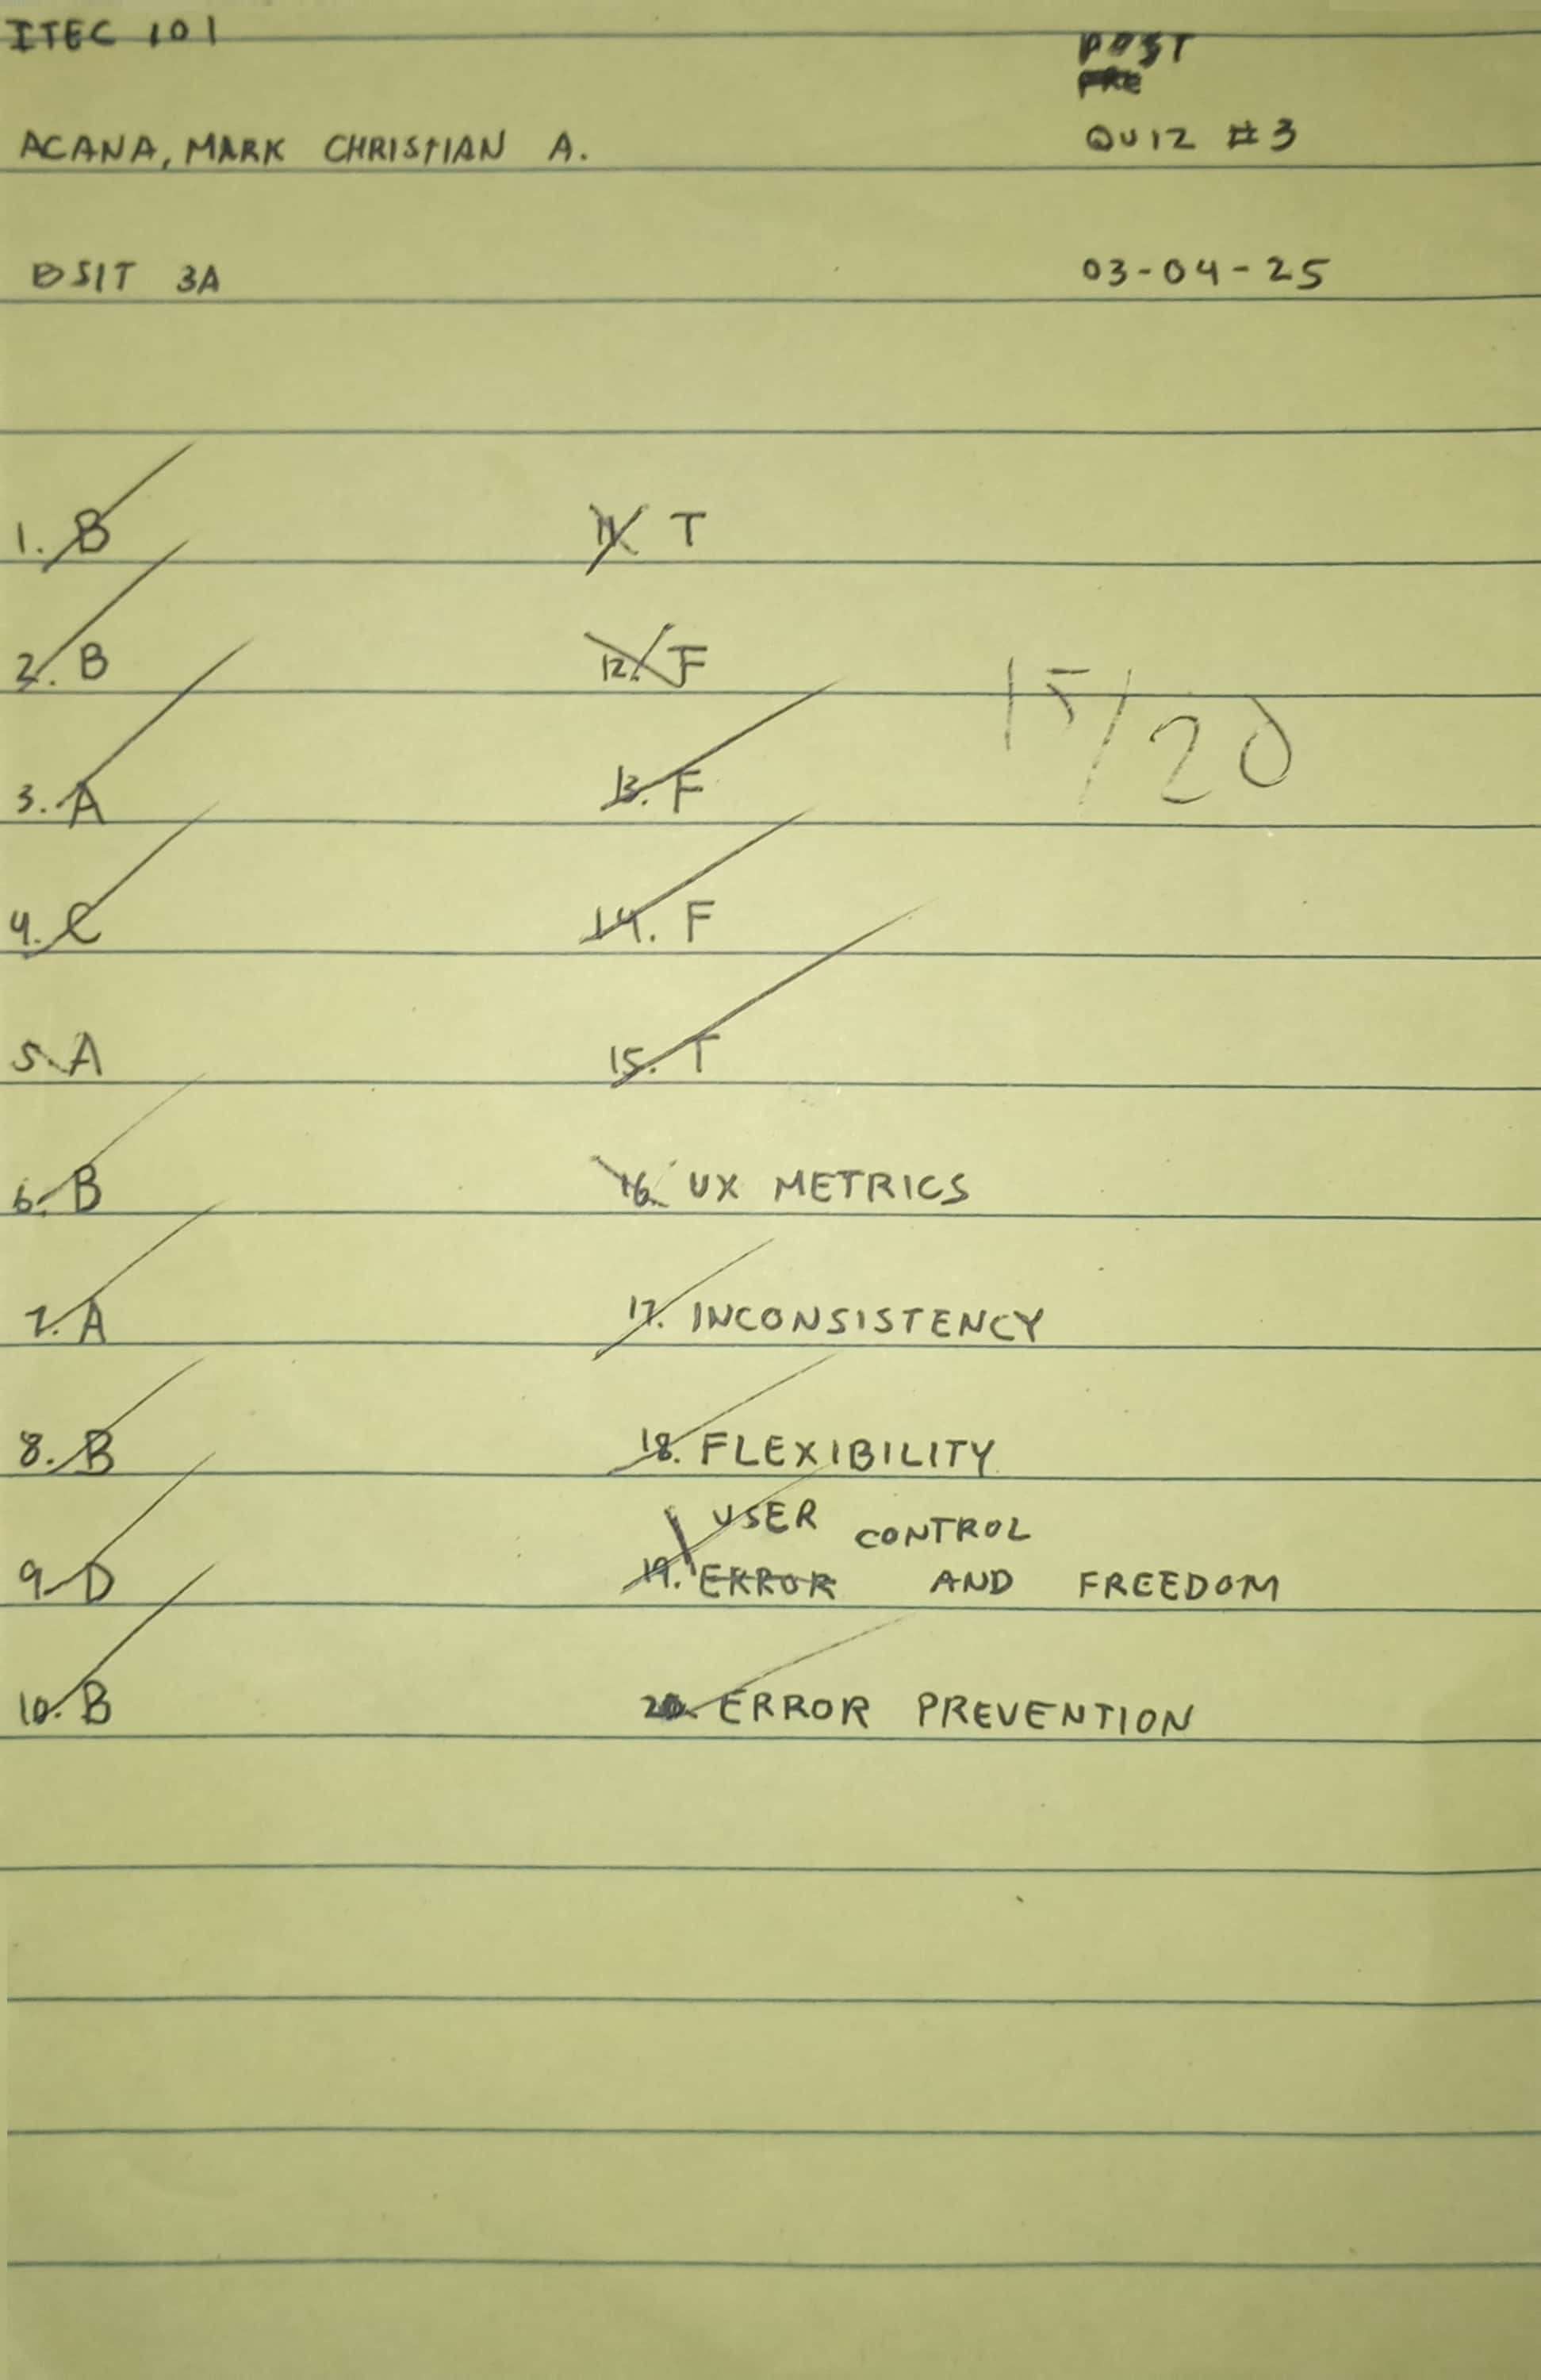 ITEC 101
POST
PRE
ACANA, MARK CHRISTIAN A.
QUIZ #3
BSIT 3A
03-04-25
1. B
2. B
3. A
4. C
5. A
6. B
7. A
8. B
9. D
10. B
11. T
12. F
13. F
14. F
15. T
16. UX METRICS
17. INCONSISTENCY
18. FLEXIBILITY
USER CONTROL
19. ERROR AND FREEDOM
20. ERROR PREVENTION
15/20